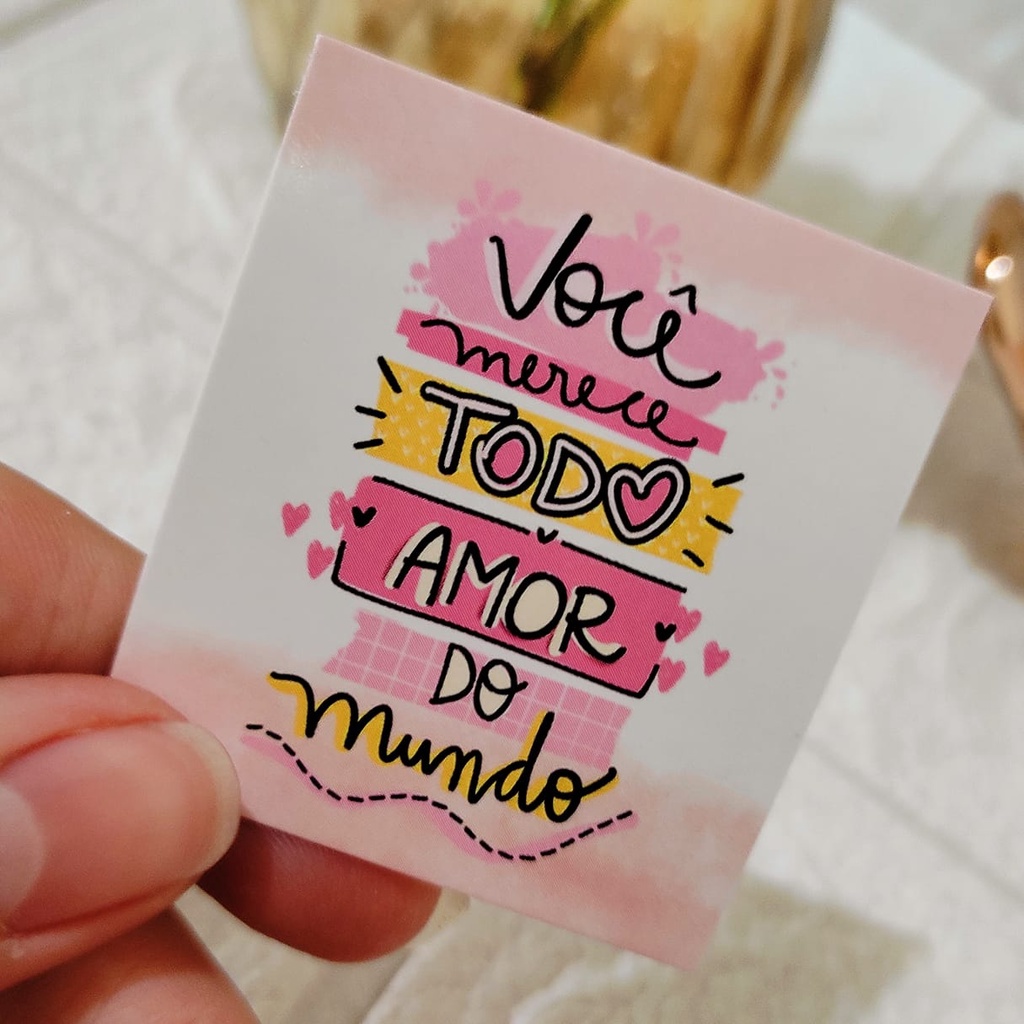 Você
merece
TODO
AMOR
DO
mundo